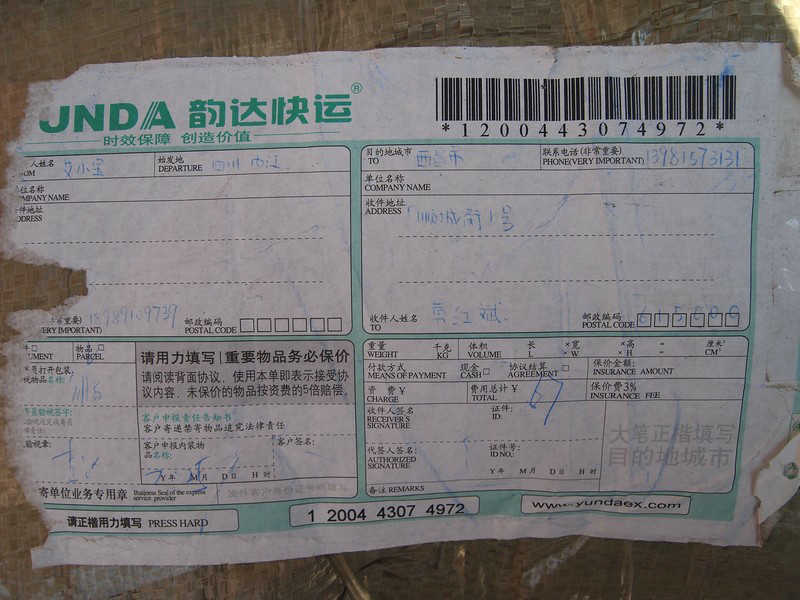 UNDA 韵达快运®
时效保障 创造价值
*1200443074972*
人姓名 艾小宝 始发地 DEPARTURE 四川 内江
OM
位名称
MPANY NAME
件地址
DDRESS
市重要) 18989109739 邮政编码
ERY IMPORTANT) POSTAL CODE
目的地城市 TO 西昌市 联系电话(非常重要) PHONE(VERY IMPORTANT) 13981573131
单位名称
COMPANY NAME
收件地址
ADDRESS 顺城街1号
收件人姓名 TO 江斌 邮政编码 POSTAL CODE 615000
件 物品
UMENT PARCEL
请用力填写 重要物品务必保价
请阅读背面协议、使用本单即表示接受协
议内容、未保价的物品按资费的5倍赔偿。
员打开包装,
视物品名称:
客户申报责任告知书
客户寄递禁寄物品追究法律责任
员验视签字:
验视章:
客户申报内装物
品名称:
客户签名:
Y年 M月 D日 H时
寄单位业务专用章 Business Seal of the express service provider
请正楷用力填写 PRESS HARD
重量 WEIGHT 千克 KG 体积 VOLUME 长 L ×宽 × W ×高 × H = 厘米³ CM³
付款方式 MEANS OF PAYMENT 现金 CASH 协议结算 AGREEMENT 保价金额: INSURANCE AMOUNT
资费¥ CHARGE 费用总计¥ TOTAL 67 保价费3% INSURANCE FEE
收件人签名 证件:
RECEIVER'S SIGNATURE ID:
代签人签名: 证件号:
AUTHORIZED SIGNATURE ID NO.:
Y年 M月 D日 H时
大笔正楷填写
目的地城市
备注 REMARKS
1 2004 4307 4972
www.yundaex.com